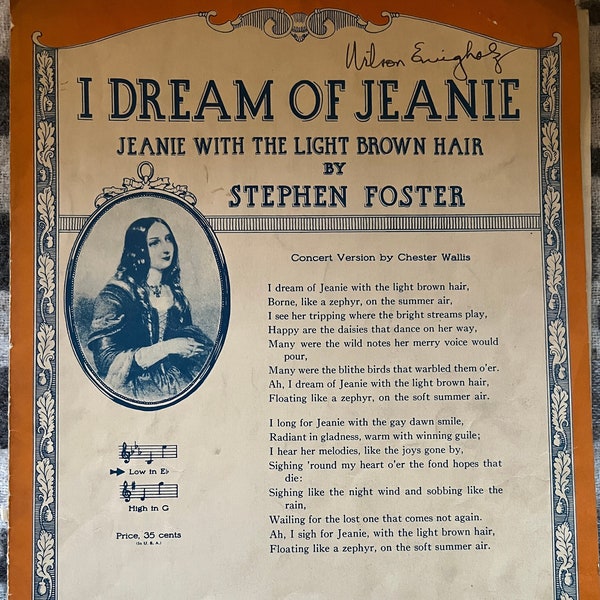 Wilson
I DREAM OF JEANIE
JEANIE WITH THE LIGHT BROWN HAIR
BY
STEPHEN FOSTER
Concert Version by Chester Wallis
I dream of Jeanie with the light brown hair,
Borne, like a zephyr, on the summer air,
I see her tripping where the bright streams play,
Happy are the daisies that dance on her way,
Many were the wild notes her merry voice would
pour,
Many were the blithe birds that warbled them o'er.
Ah, I dream of Jeanie with the light brown hair,
Floating like a zephyr, on the soft summer air.
I long for Jeanie with the gay dawn smile,
Radiant in gladness, warm with winning guile;
I hear her melodies, like the joys gone by,
Sighing 'round my heart o'er the fond hopes that
die:
Sighing like the night wind and sobbing like the
rain,
Wailing for the lost one that comes not again.
Ah, I sigh for Jeanie, with the light brown hair,
Floating like a zephyr, on the soft summer air.
Low in E♭
High in G
Price, 35 cents
(In U. S. A.)